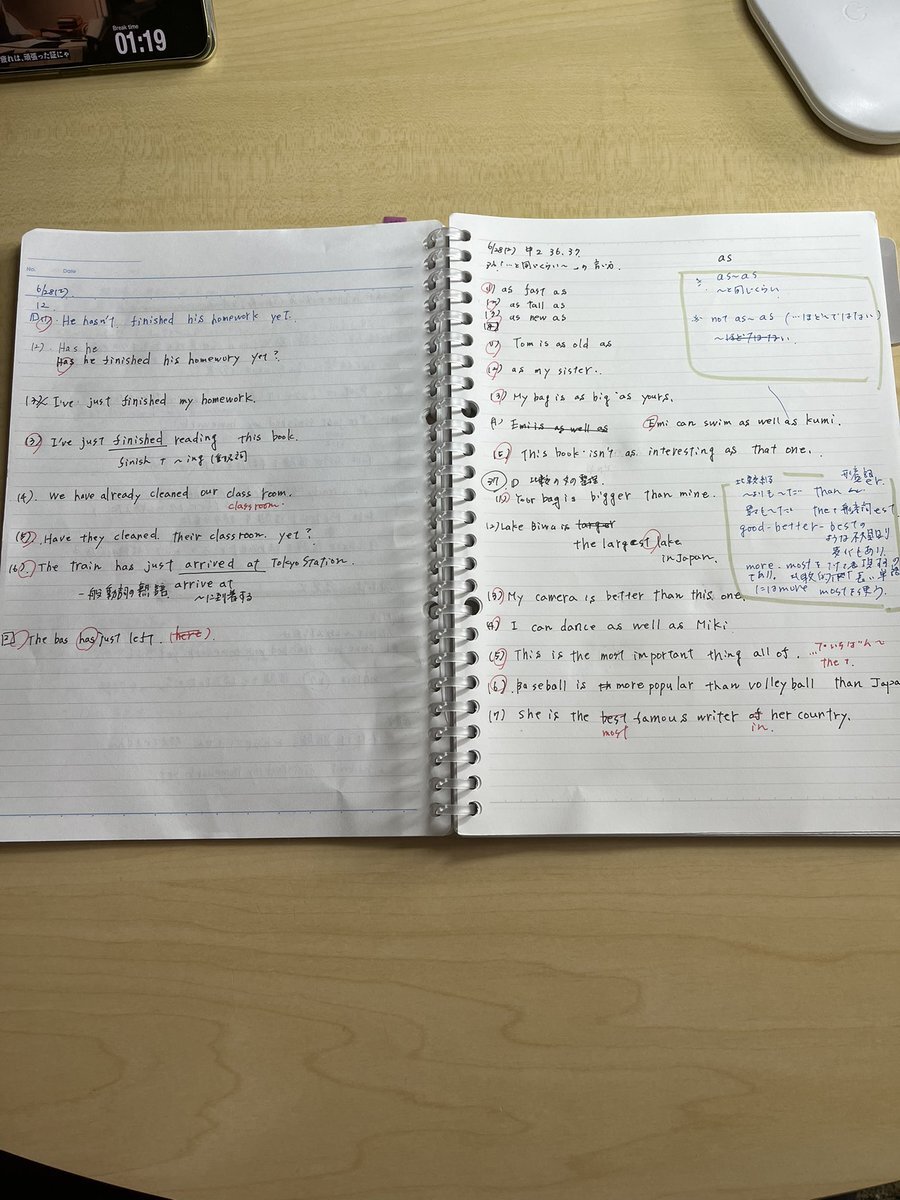 Break time
01:19
疲れは、頑張った証にゃ
No.
Date
6/28(2)
12
(1) He hasn't finished his homework yet.
(2) Has he
Has he finished his homewory yet?
I've just finished my homework.
(3) I've just finished reading this book.
finish + ~ing (動名詞)
(4). we have already cleaned our class room.
classroom
(5). Have they cleaned their classroom yet?
(6). The train has just arrived at Tokyo Station.
arrive at
~に到着する
2 The bas has just left. (here).
6/28(2) 中2 36.37
「…と同じくらい~」の言い方.
(1) as fast as
(2) as tall as
(3) as new as
(1) Tom is as old as
(2) as my sister.
(3) My bag is as big as yours.
Emi is as well as Emi can swim as well as kumi.
(5) This book isn't as interesting as that one.
as
as~as
~と同じくらい
not as~as (…ほど~ではない)
~ほどではない.
37
(1) Your bag is bigger than mine.
(2) Lake Biwa is larger
the largest lake
in Japan.
(3) My camera is better than this one.
(4) I can dance as well as Miki
(5) This is the most important thing all of.
(6). Baseball is th more popular than volleyball than Japa
(7) she is the best famous writer of her country.
most in.
than
er.
est
good-better-best
more.most
more mostを使う.